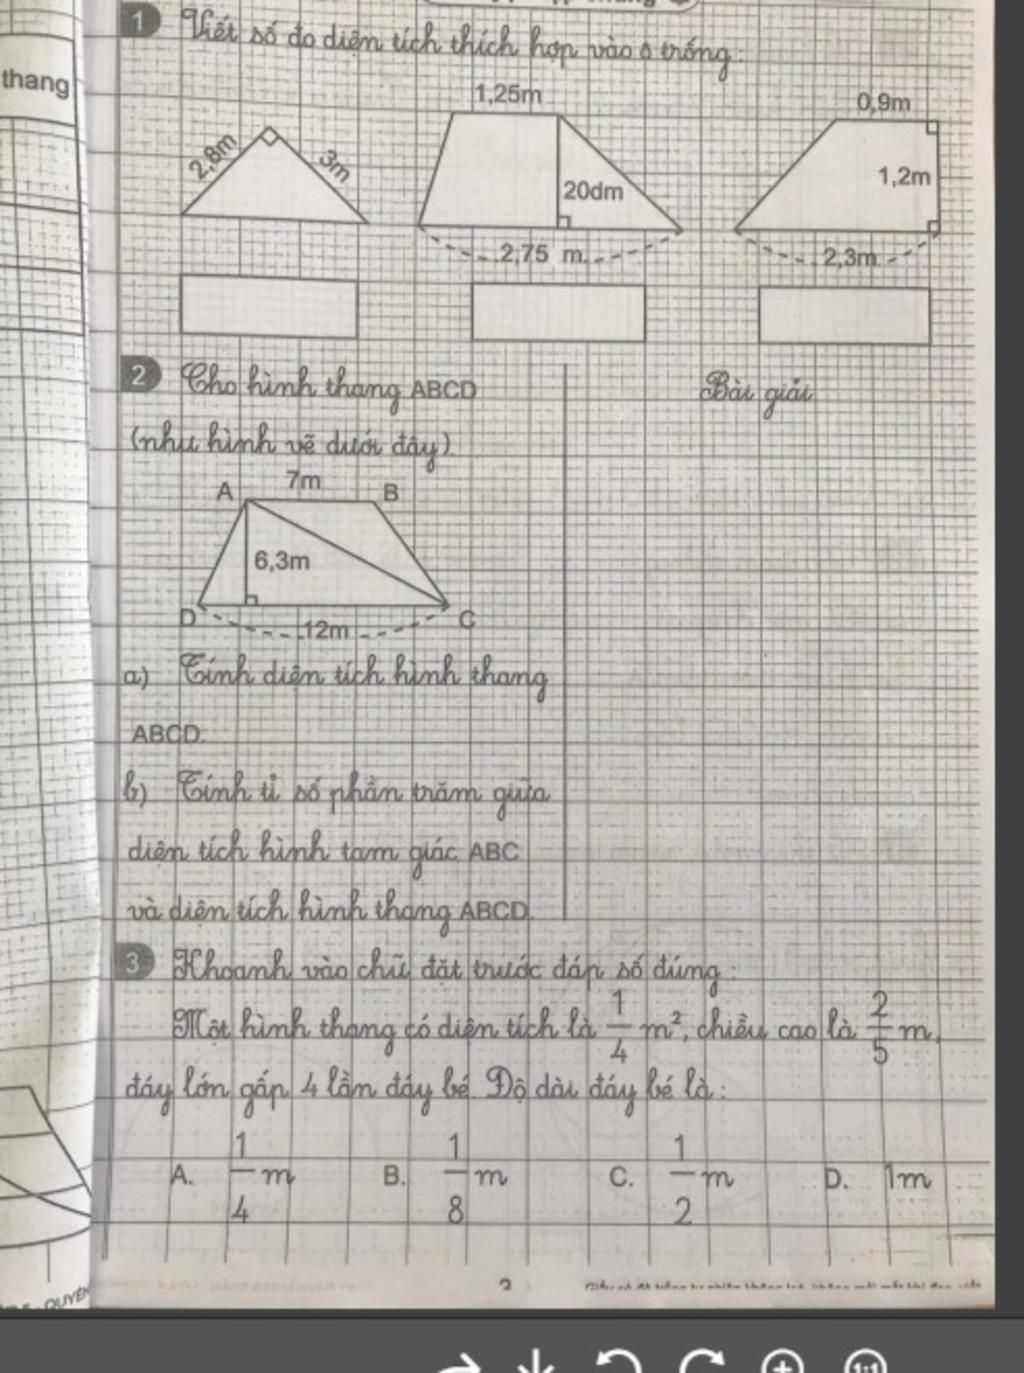 thang
1 Viết số đo diện tích thích hợp vào ô trống:
1,25m
0,9m
2,8m
3m
20dm
1,2m
2,75 m
2,3m
2 Cho hình thang ABCD
(như hình vẽ dưới đây).
Bài giải
7m
A
B
6,3m
D
C
12m
a) Tính diện tích hình thang
ABCD.
b) Tính tỉ số phần trăm giữa
diện tích hình tam giác ABC
và diện tích hình thang ABCD.
3 Khoanh vào chữ đặt trước đáp số đúng:
Một hình thang có diện tích là 1/4 m², chiều cao là 2/5 m,
đáy lớn gấp 4 lần đáy bé. Độ dài đáy bé là:
A. 1/4 m B. 1/8 m C. 1/2 m D. 1m